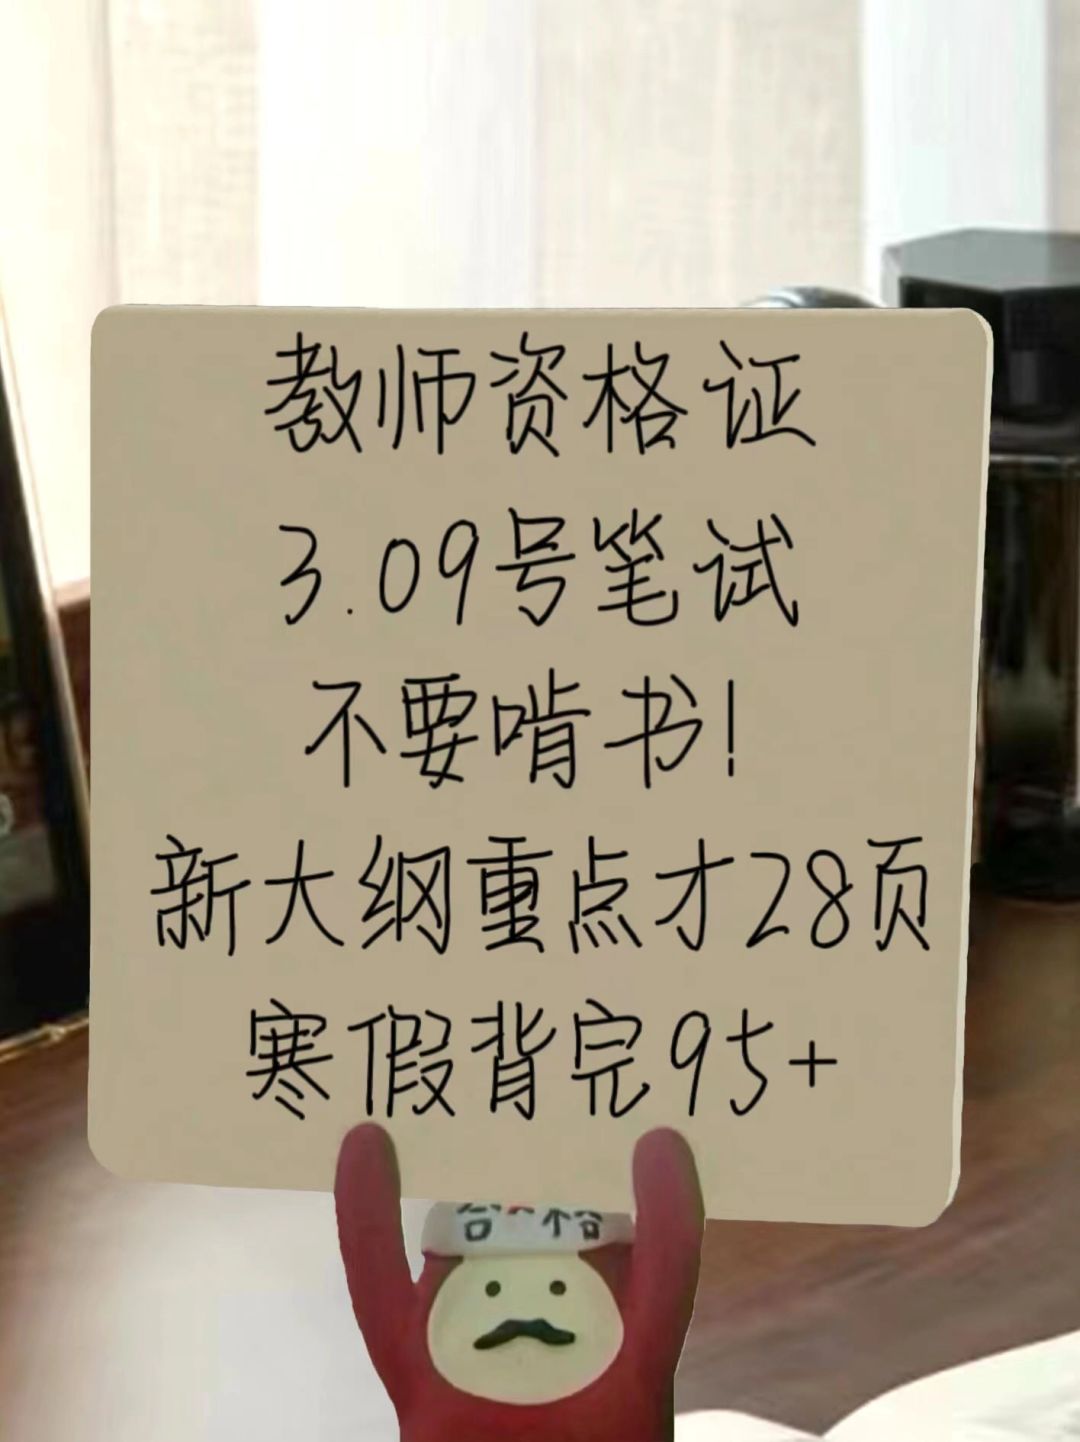 教师资格证
3.09号笔试
不要啃书!
新大纲重点才28页
寒假背完95+
合格